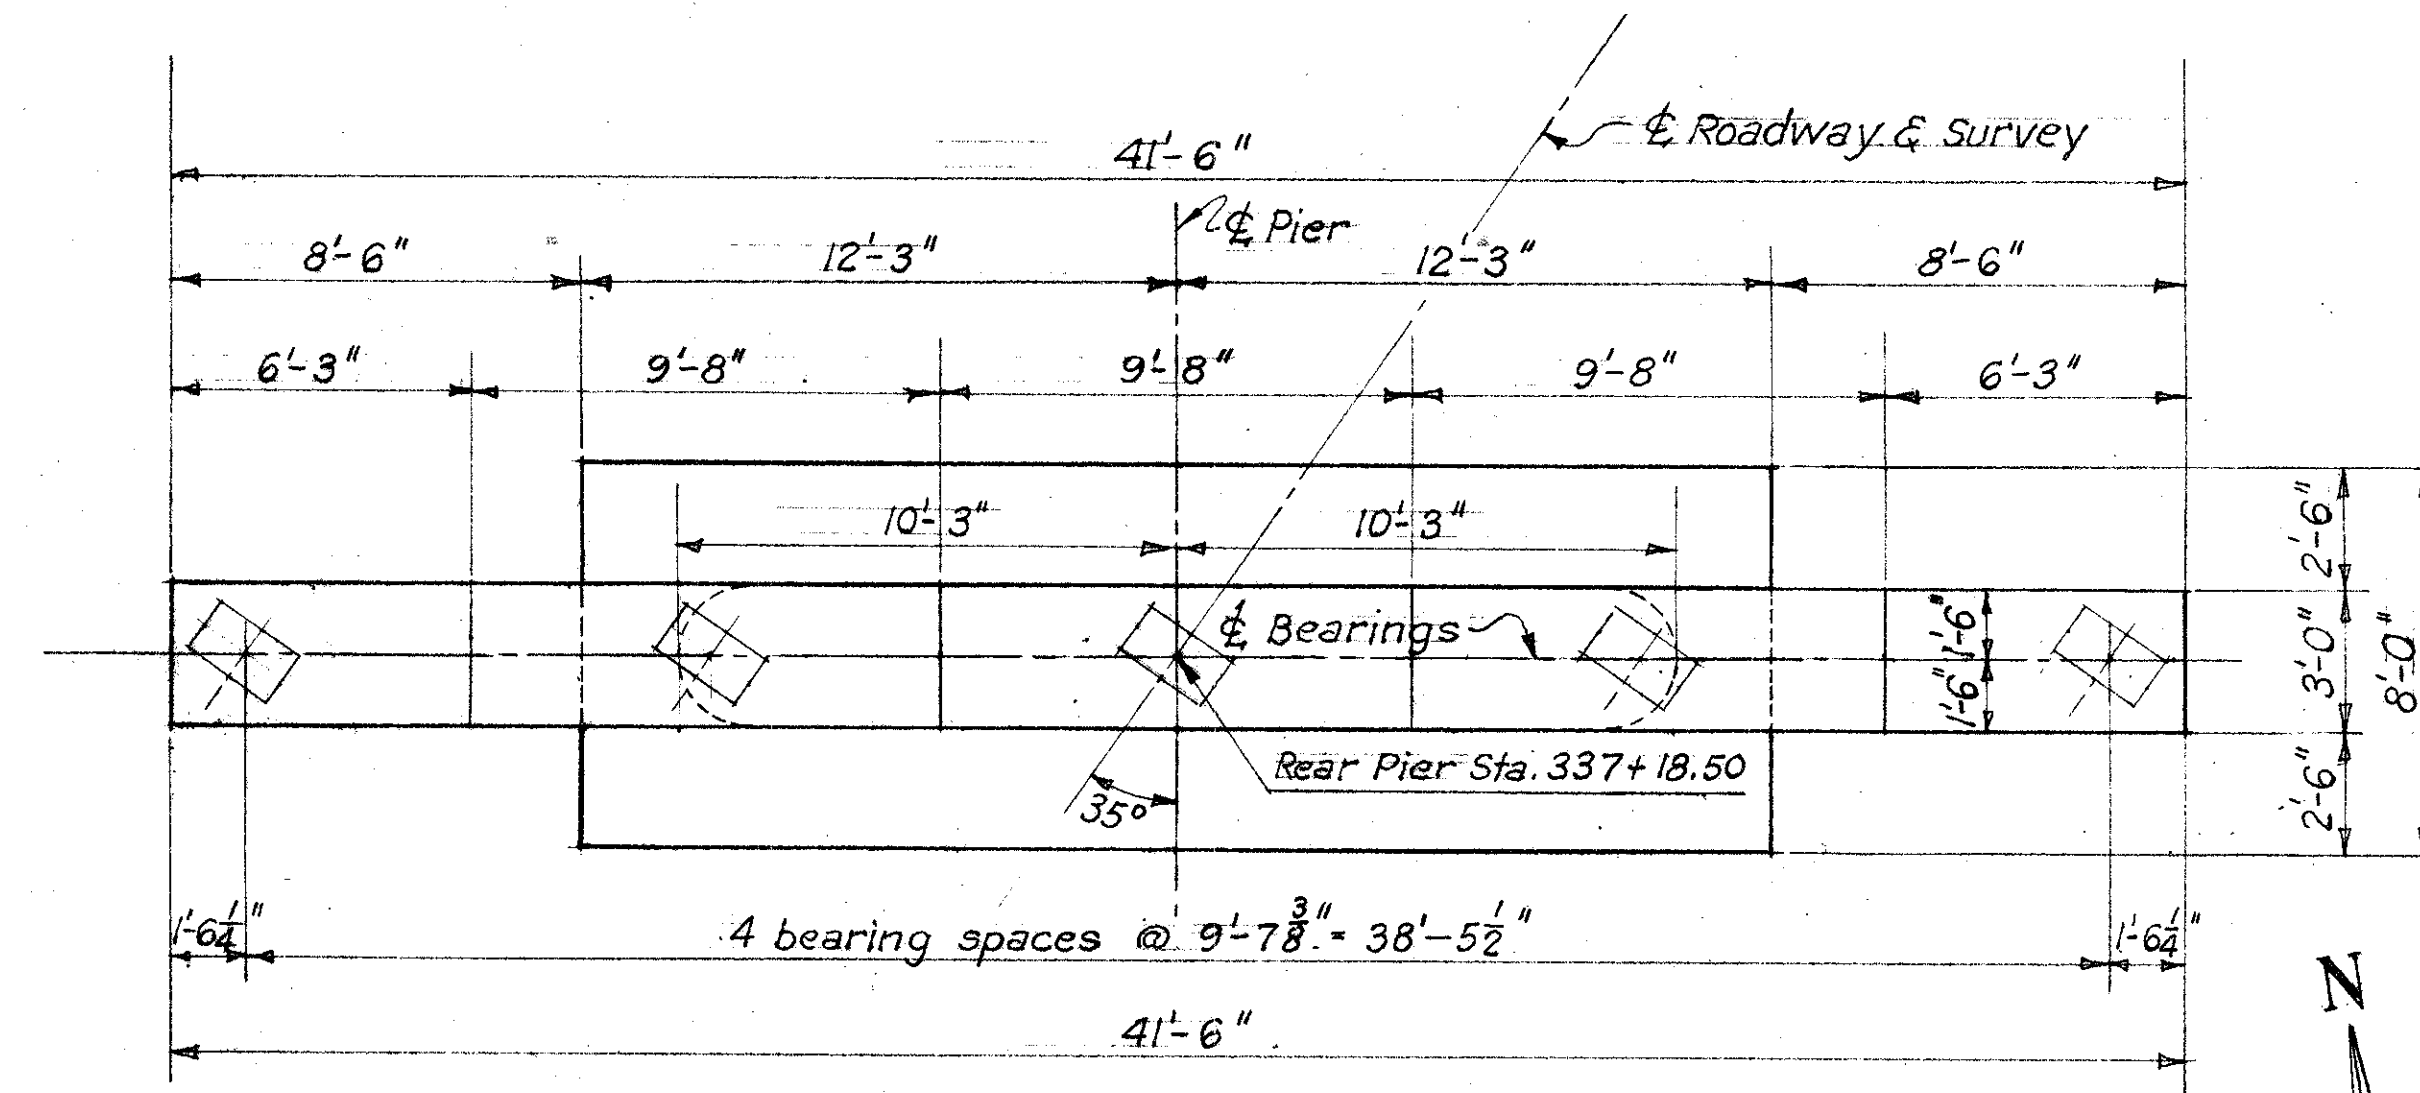 ℄ Roadway & Survey
41'-6"
℄ Pier
8'-6" 12'-3" 12'-3" 8'-6"
6'-3" 9'-8" 9'-8" 9'-8" 6'-3"
10'-3" 10'-3"
2'-6"
℄ Bearings
1'-6"
1'-6"
3'-0"
8'-0"
Rear Pier Sta. 337+18.50
35°
2'-6"
1'-6 1/4" 4 bearing spaces @ 9'-7 3/8" = 38'-5 1/2" 1'-6 1/4"
N
41'-6"